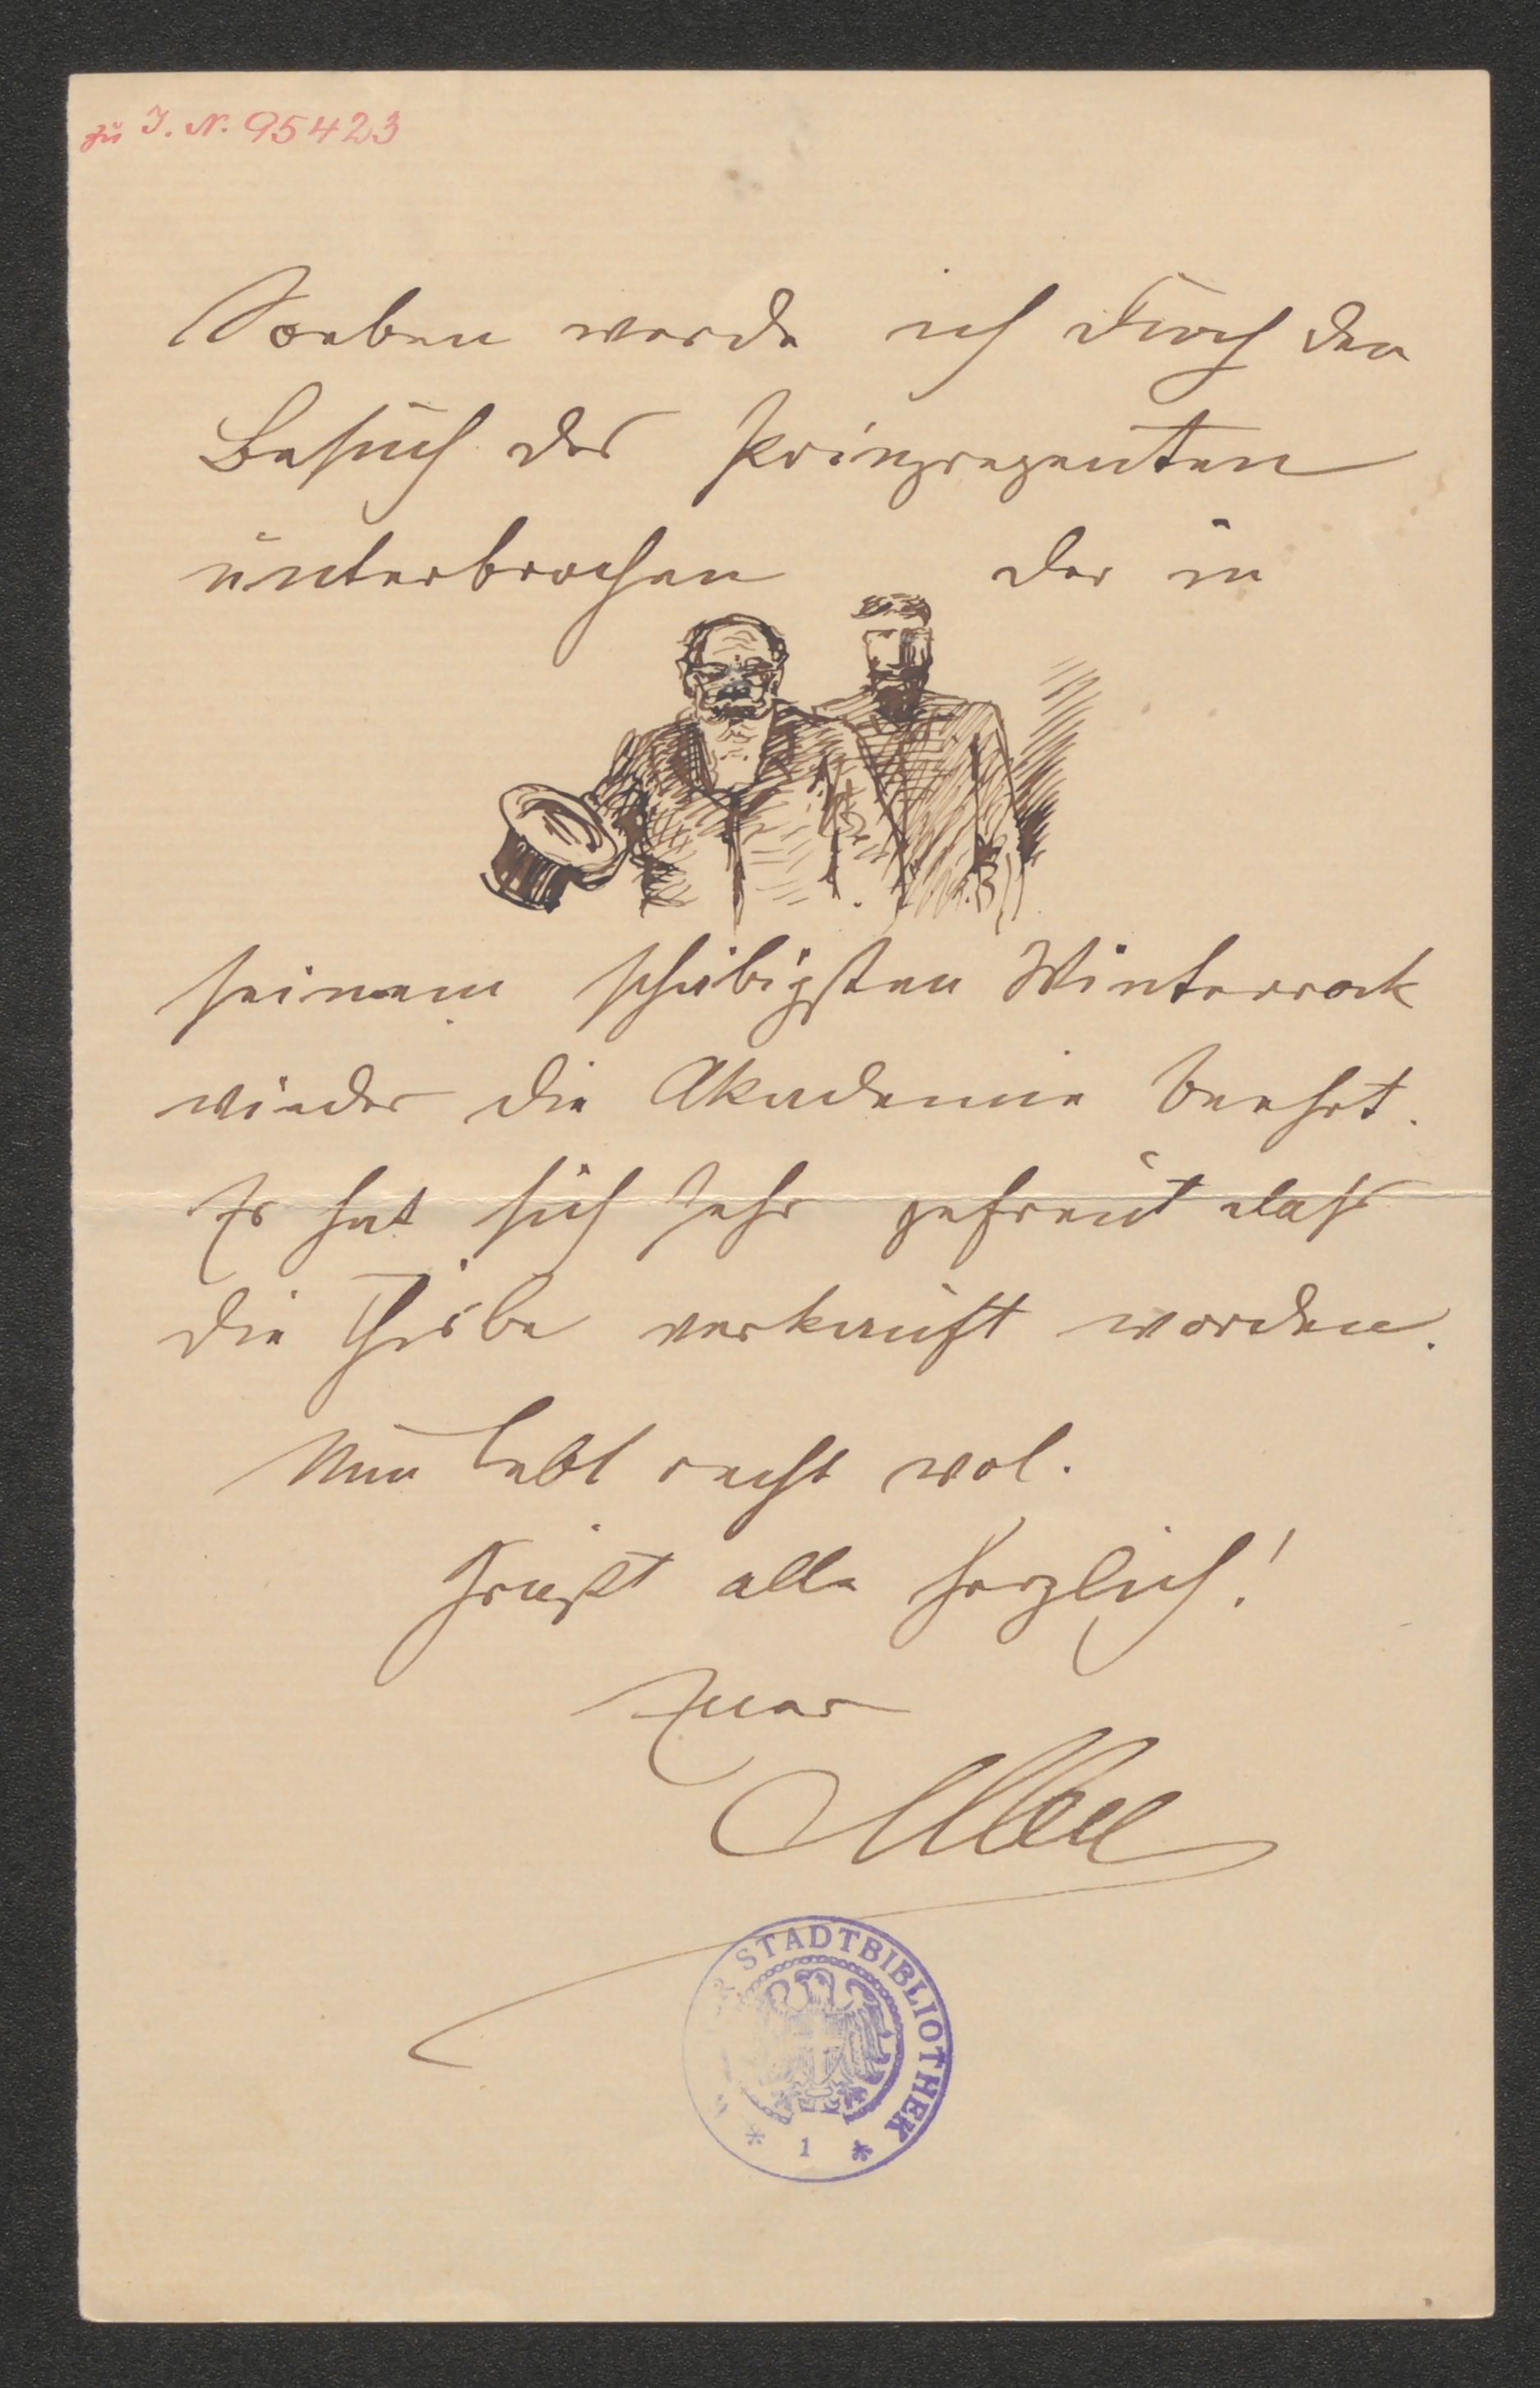 zu I. N. 95423
Soeben werde ich durch den
Besuch des Prinzregenten
unterbrochen der in
seinem schäbigsten Winterrock
wieder die Akademie beehrt.
Er hat sich sehr gefreut dass
die Thisbe verkauft worden.
Nun lebt recht wol.
Grüßt alle herzlich!
Euer
STADTBIBLIOTHEK
* 1 *